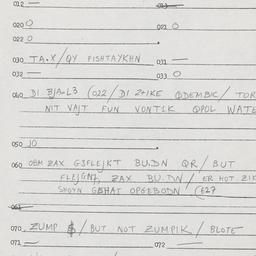 012 —
013 —
020 O
021 O
022 O
030 TA.X / QY FISHTAYKHN
031 —
032 —
033 O
040 DI (022 / DI QDEMBIC / TOR
NIT VAJT FUN VONTIK QPOL WATE
050 10
060 OBM ZAX G3FLEJKT BU.DN QR / BUT
ZAX BU.DN / ER HOT ZIK
SHOYN GEHAT OPGEBODN (E27
061
070 ZUMP / BUT NOT ZUMPIK / BLOTE
071 —
072 —